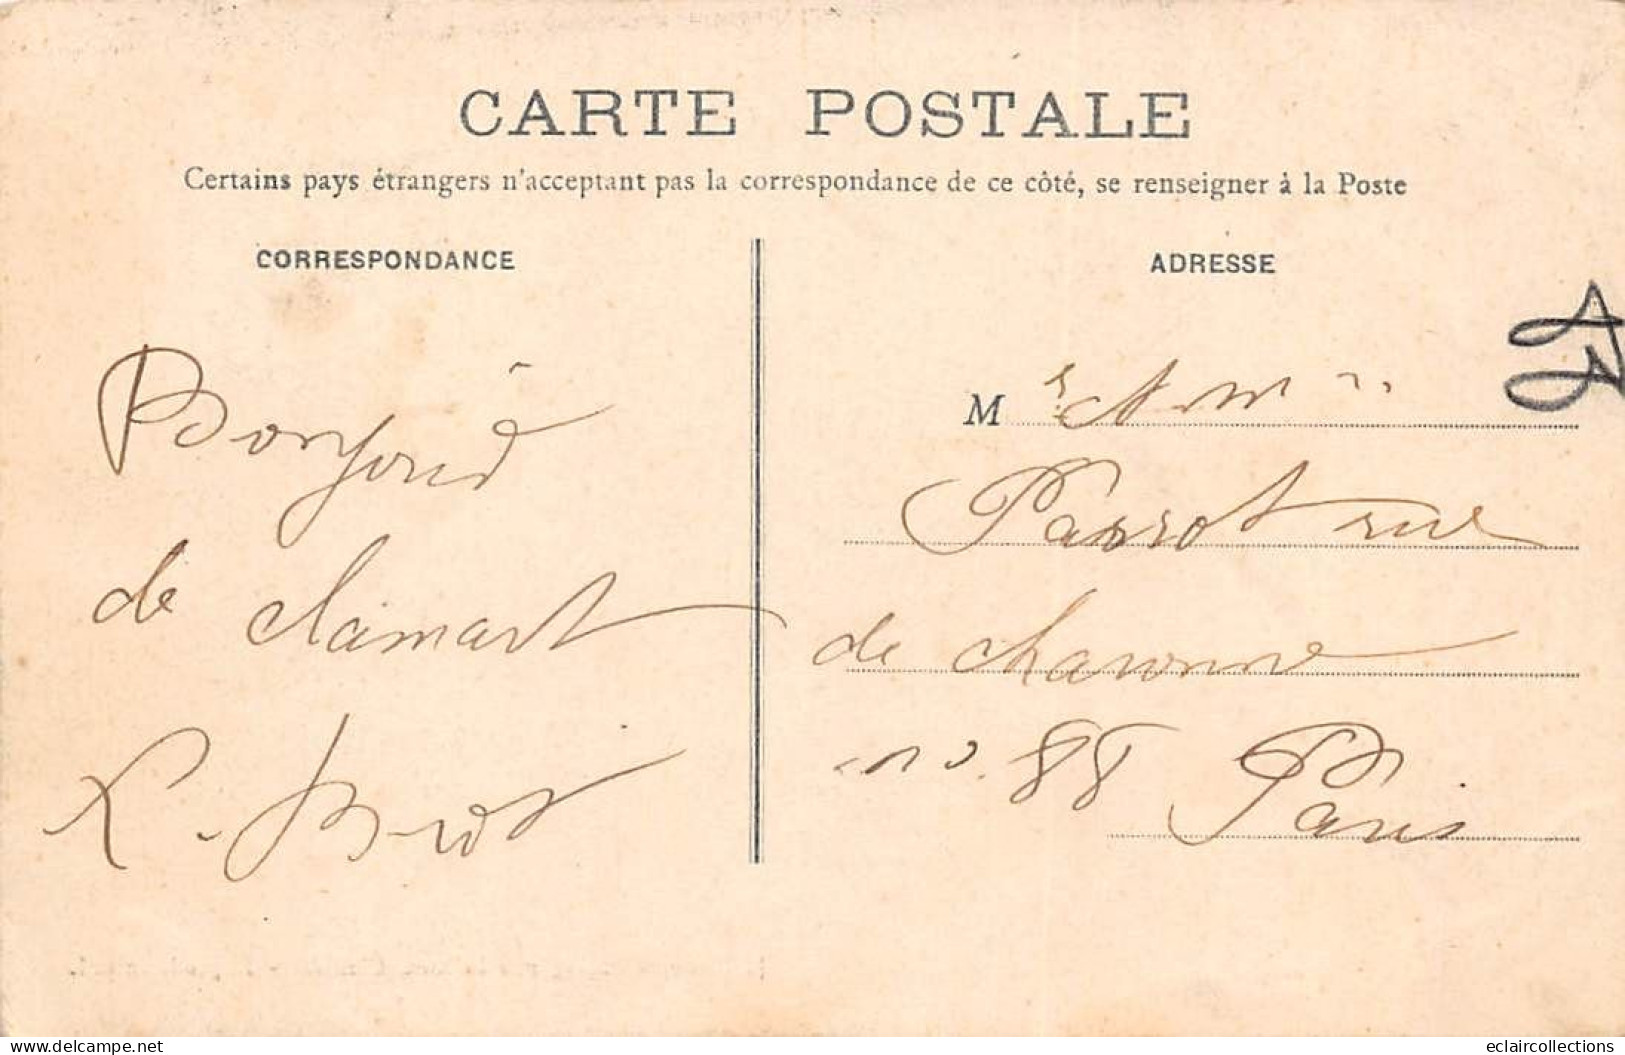 CARTE POSTALE
Certains pays étrangers n'acceptant pas la correspondance de ce côté, se renseigner à la Poste
CORRESPONDANCE
Bonjour
de clamart
ADRESSE
M
Parrot rue
de charonne
no. 88 Paris
delcampe.net
eclaircollections